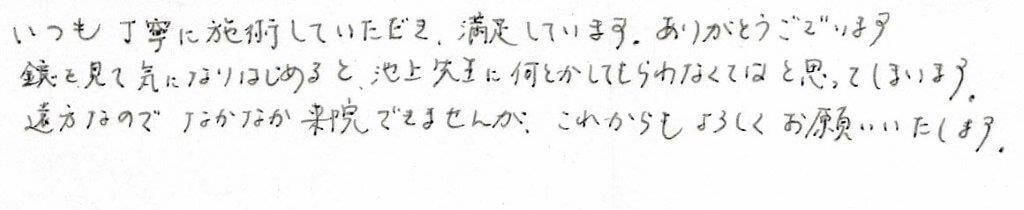 いつも丁寧に施術していただき、満足しています。ありがとうございます
鏡を見て気になりはじめると、池上先生に何とかしてもらわなくてはと思ってしまいます。
遠方なのでなかなか来院できませんが、これからもよろしくお願いいたします。